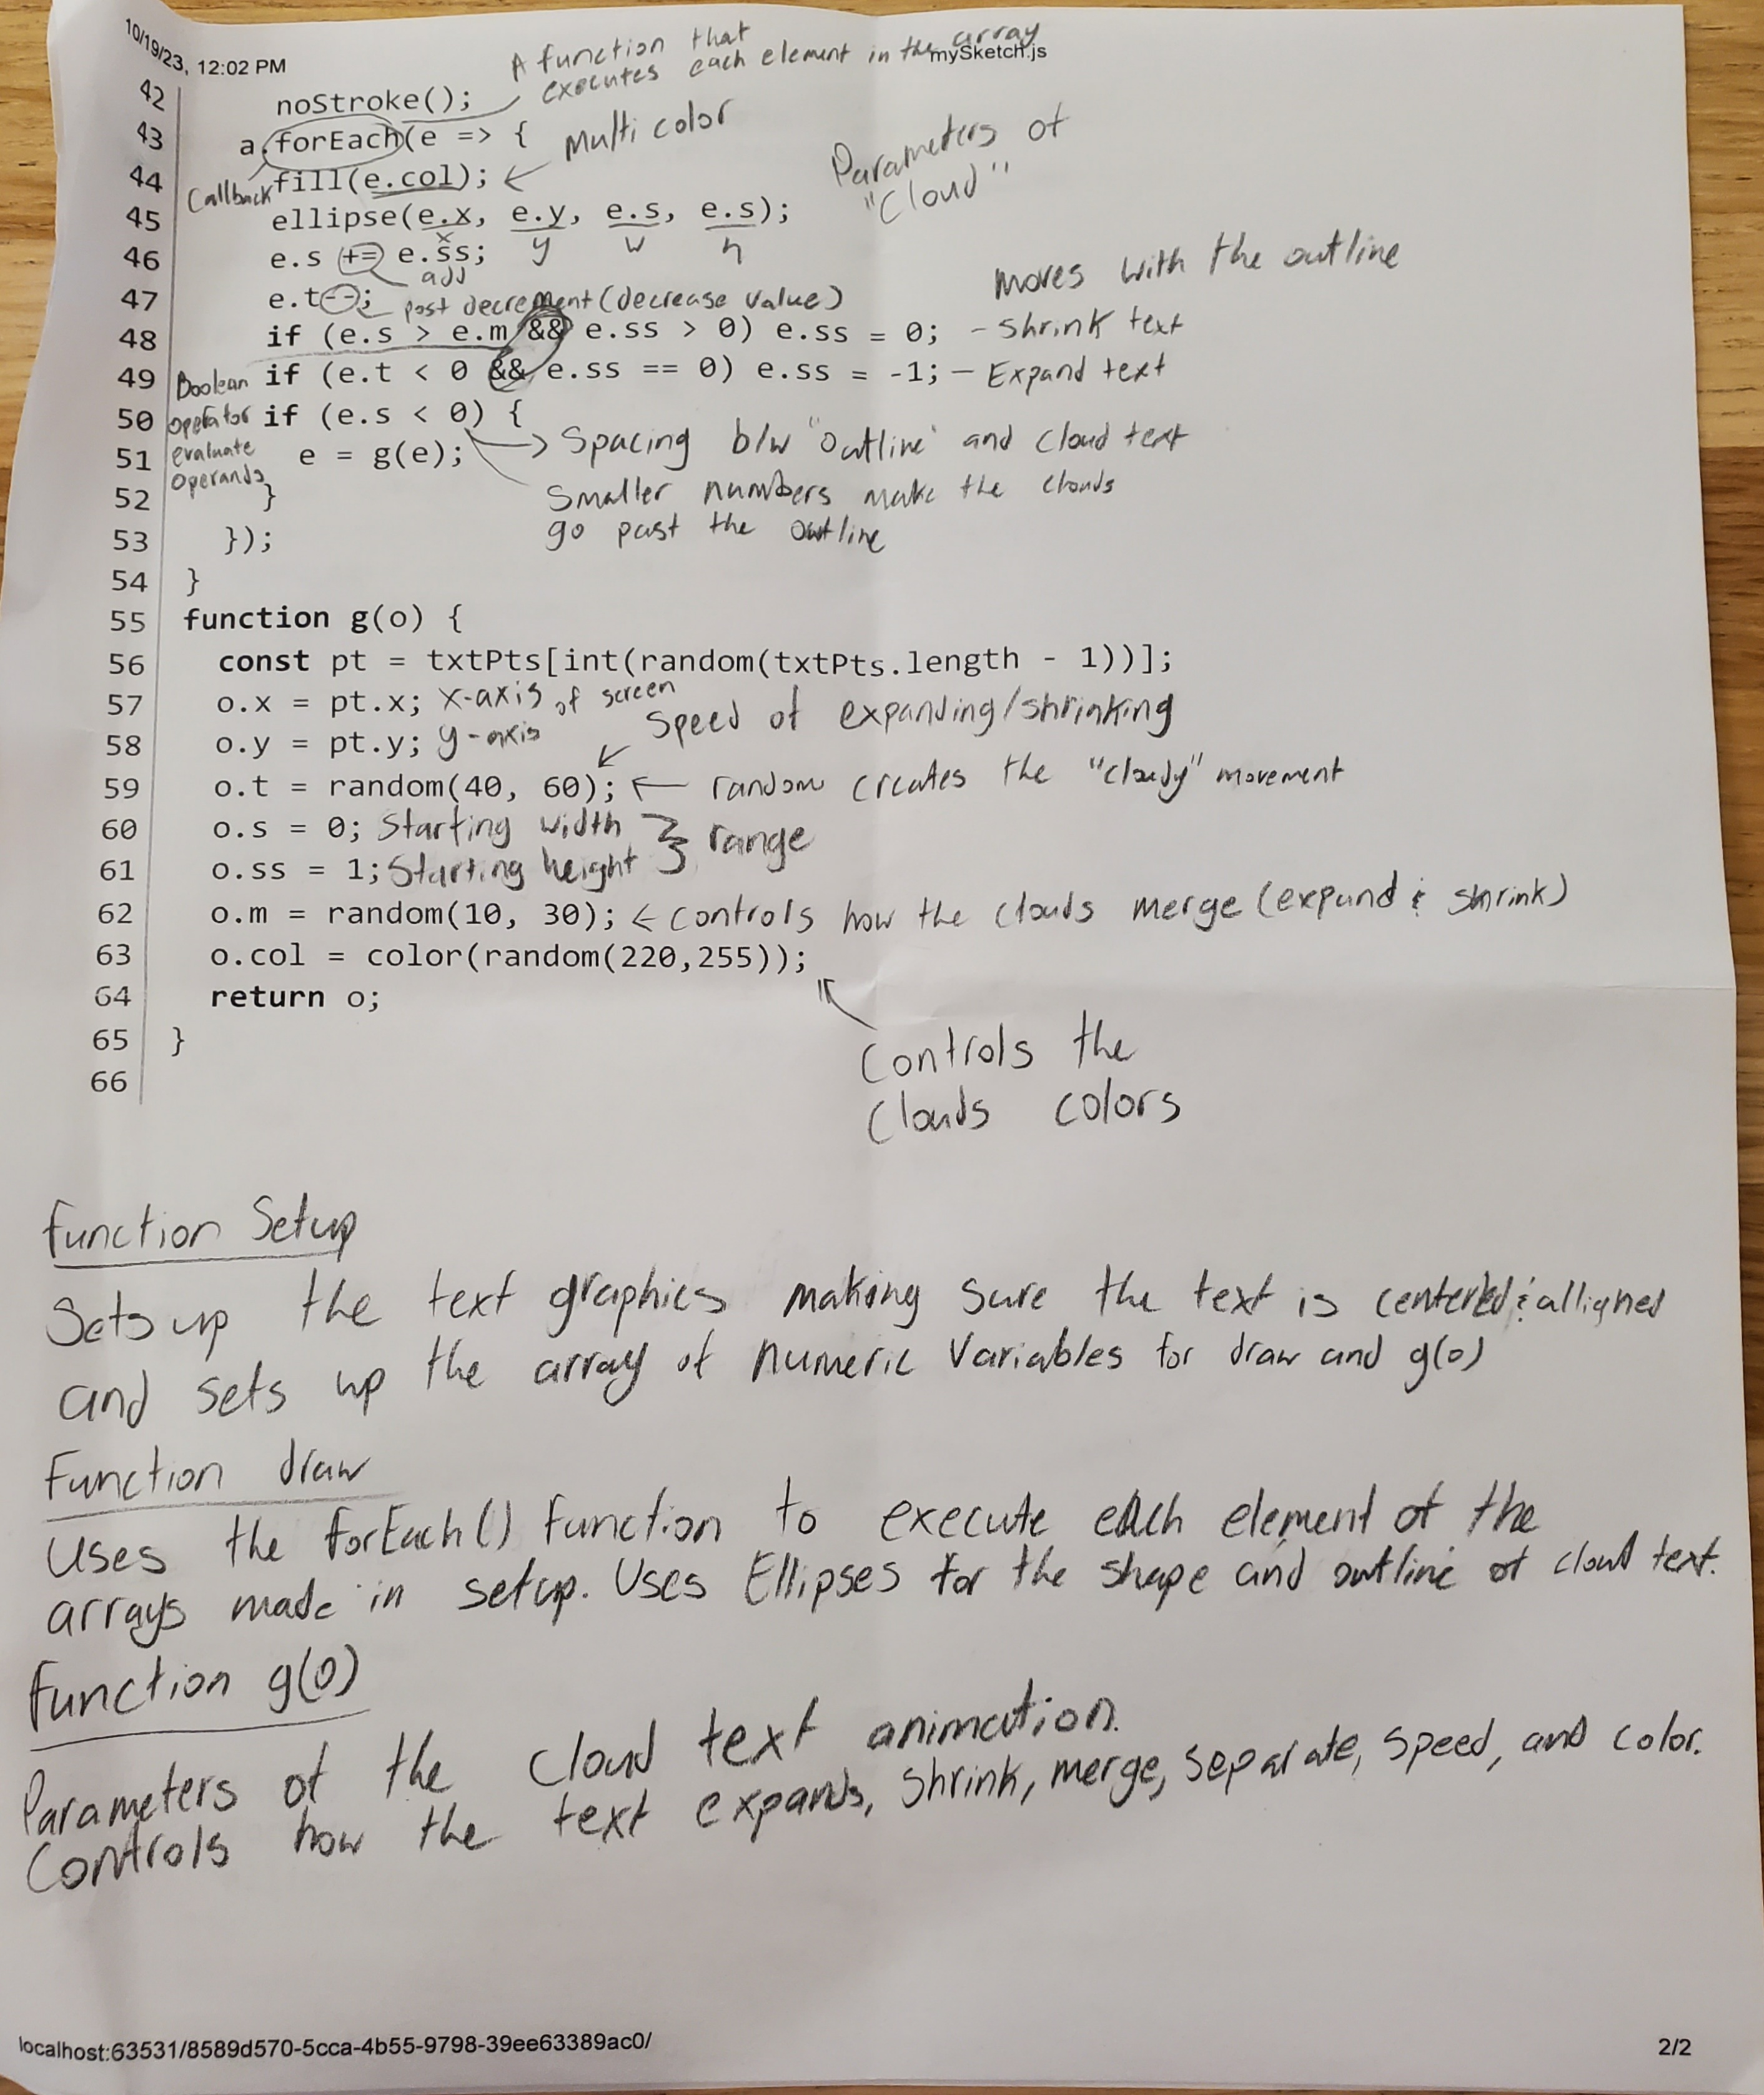 10/19/23, 12:02 PM
mySketch.js
A function that
executes each element in the array
42 noStroke();
43 a.forEach(e => {
Multi color
Parameters of
"Cloud"
Callback
44 fill(e.col);
45 ellipse(e.x, e.y, e.s, e.s);
x y w h
46 e.s += e.ss;
add
47 e.t--; post decrement (decrease value)
moves with the outline
48 if (e.s > e.m && e.ss > 0) e.ss = 0; - shrink text
49 if (e.t < 0 && e.ss == 0) e.ss = -1; - Expand text
Boolean
operator
evaluate
operands
50 if (e.s < 0) {
51 e = g(e);
Spacing b/w "outline" and cloud text
Smaller numbers make the clouds
go past the outline
52 }
53 });
54 }
55 function g(o) {
56 const pt = txtPts[int(random(txtPts.length - 1))];
57 o.x = pt.x; x-axis of screen
58 o.y = pt.y; y-axis
Speed of expanding/shrinking
59 o.t = random(40, 60); ← random creates the "cloudy" movement
60 o.s = 0; Starting width
61 o.ss = 1; Starting height
range
62 o.m = random(10, 30); ← controls how the clouds merge (expand & shrink)
63 o.col = color(random(220,255));
64 return o;
65 }
66
Controls the
clouds colors
function Setup
Sets up the text graphics making sure the text is centered & alligned
and sets up the array of numeric variables for draw and g(o)
Function draw
Uses the forEach() function to execute each element of the
arrays made in setup. Uses Ellipses for the shape and outline of cloud text.
Function g(o)
Parameters of the cloud text animation.
Controls how the text expands, shrink, merge, separate, speed, and color.
localhost:63531/8589d570-5cca-4b55-9798-39ee63389ac0/
2/2